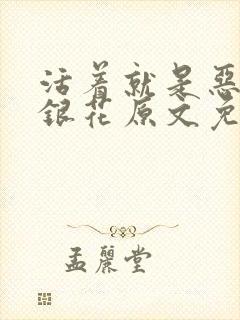 活着就是惡
銀花原文免
孟麗堂